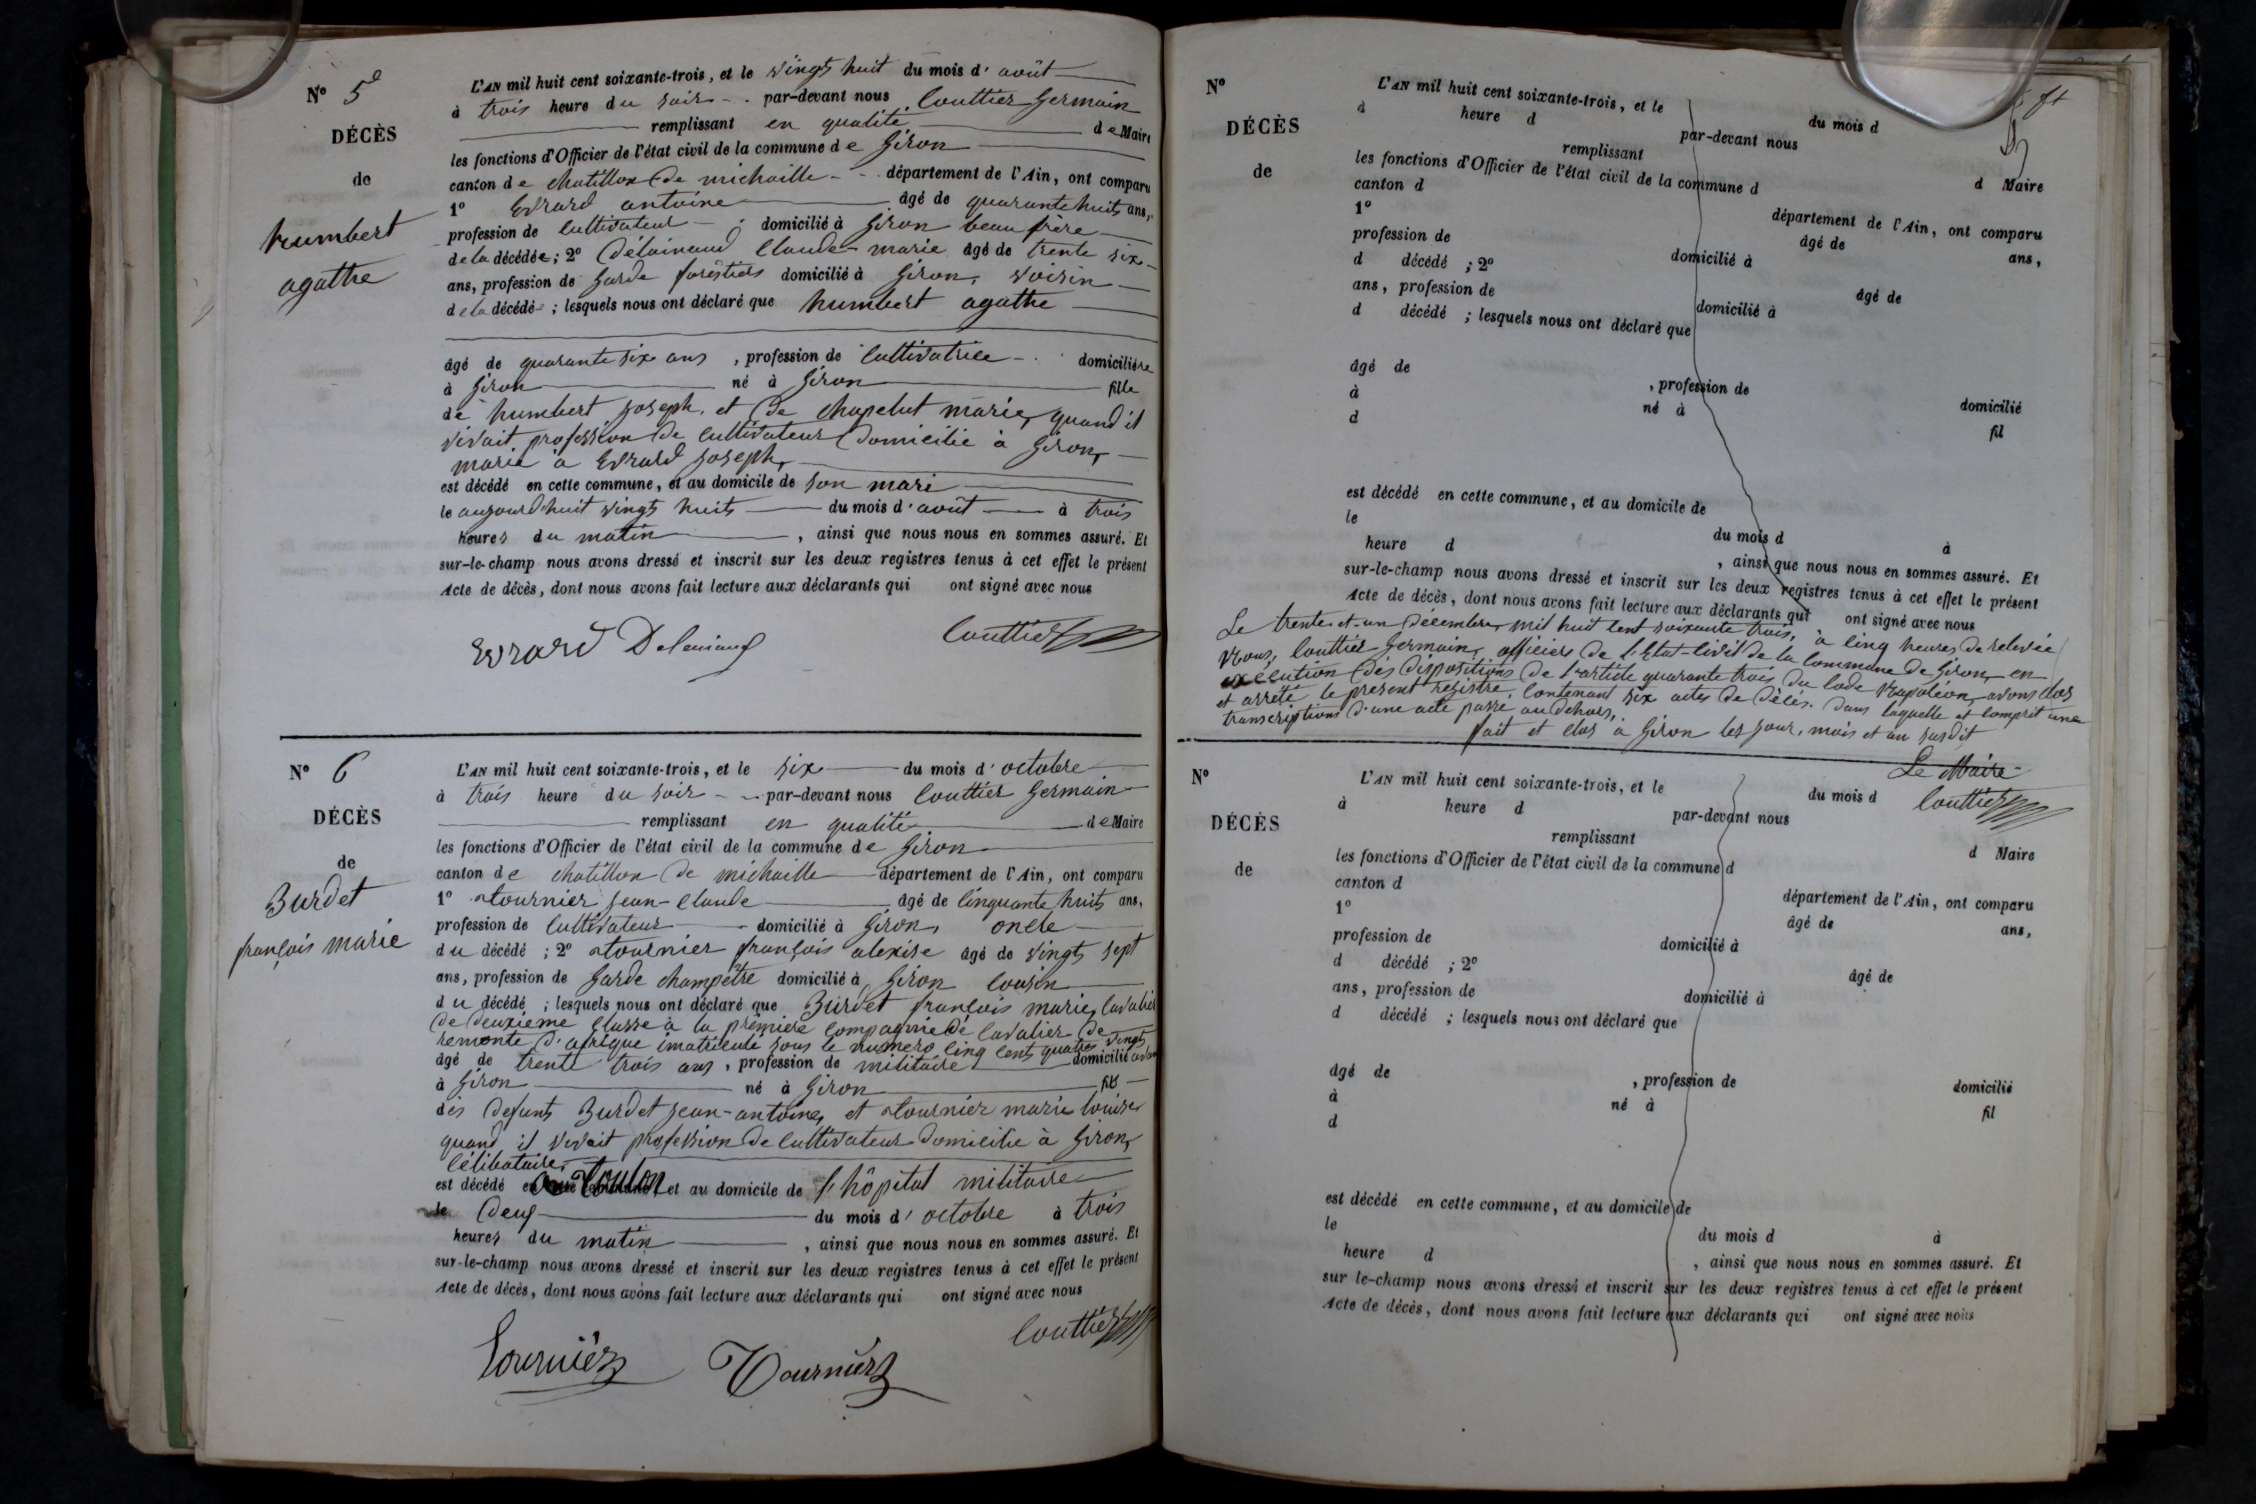 N° 5e
DÉCÈS
de
humbert
agathe
L'AN mil huit cent soixante-trois, et le vingt huit du mois d' août
à trois heure du soir par-devant nous Couttier Germain
remplissant en qualité de Maire
les fonctions d'Officier de l'état civil de la commune de Giron
canton de chatillon de michaille département de l'Ain, ont comparu
1° Evrard antoine âgé de quarante huits ans,
profession de Cultivateur ; domicilié à Giron beau frère
de la décédée ; 2° Délainaud Claude-marie âgé de trente six
ans, profession de Garde forêstiers domicilié à Giron, voisin
de la décédé ; lesquels nous ont déclaré que humbert agathe
âgé de quarante six ans , profession de Cultivatrice domiciliére
à Giron né à Giron fille
de humbert Joseph, et de chapelut marie, quand il
vivait profession de Cultivateur domicilié à Giron,
marié à Evrard Joseph,
est décédé en cette commune, et au domicile de son mari
le aujourd'huit vingt huits du mois d'août à trois
heures du matin , ainsi que nous nous en sommes assuré. Et
sur-le-champ nous avons dressé et inscrit sur les deux registres tenus à cet effet le présent
Acte de décès, dont nous avons fait lecture aux déclarants qui ont signé avec nous
Evrard Couttier
N° 6
DÉCÈS
de
Burdet
françois marie
L'AN mil huit cent soixante-trois, et le six du mois d' octobre
à trois heure du soir par-devant nous Couttier Germain
remplissant en qualité de Maire
les fonctions d'Officier de l'état civil de la commune de Giron
canton de chatillon de michaille département de l'Ain, ont comparu
1° tournier Jean-Claude âgé de Cinquante huits ans,
profession de Cultivateur domicilié à Giron, oncle
du décédé ; 2° tournier françois alexise âgé de vingt sept
ans, profession de Garde champêtre domicilié à Giron Cousin
du décédé ; lesquels nous ont déclaré que Burdet françois marie, Cavalier
de deuxième Classe à la première Compagnie de Cavalier de
remonte d'afrique imatriculé sous le numero Cinq Cents quatres vingts
âgé de trente trois ans , profession de militaire domicilié
à Giron né à Giron fils
dés defunts Burdet Jean-antoine, et tournier marie louise
quand il vivait profession de Cultivateur domicilié à Giron,
Célibataire,
est décédé à Toulon et au domicile de l'hôpital militaire
le deux du mois d' octobre à trois
heures du matin , ainsi que nous nous en sommes assuré. Et
sur-le-champ nous avons dressé et inscrit sur les deux registres tenus à cet effet le présent
Acte de décès, dont nous avons fait lecture aux déclarants qui ont signé avec nous
Tournier Tournier Couttier
N°
DÉCÈS
de
L'AN mil huit cent soixante-trois, et le du mois d
à heure d par-devant nous
remplissant d Maire
les fonctions d'Officier de l'état civil de la commune d
canton d département de l'Ain, ont comparu
1° âgé de ans,
profession de domicilié à
d décédé ; 2° âgé de
ans, profession de domicilié à
d décédé ; lesquels nous ont déclaré que
âgé de , profession de domicilié
à né à fil
d
est décédé en cette commune, et au domicile de
le du mois d à
heure d , ainsi que nous nous en sommes assuré. Et
sur-le-champ nous avons dressé et inscrit sur les deux registres tenus à cet effet le présent
Acte de décès, dont nous avons fait lecture aux déclarants qui ont signé avec nous
Le trente-et-un décembre, mil huit Cent soixante trois, à Cinq heures de relevée
Nous, Couttier Germain, officiers de l'Etat-Civil de la Commune de Giron, en
execution dés dispositions de l'article quarante trois du Code Napoléon, avons clos
et arrêté le présent régistre, Contenant six actes de décés. dans laquelle et Comprit une
transcriptions d'une acte passé au dehors,
fait et clos à Giron les jour, mois et an susdit
Le Maire
Couttier
N°
DÉCÈS
de
L'AN mil huit cent soixante-trois, et le du mois d
à heure d par-devant nous
remplissant d Maire
les fonctions d'Officier de l'état civil de la commune d
canton d département de l'Ain, ont comparu
1° âgé de ans,
profession de domicilié à
d décédé ; 2° âgé de
ans, profession de domicilié à
d décédé ; lesquels nous ont déclaré que
âgé de , profession de domicilié
à né à fil
d
est décédé en cette commune, et au domicile de
le du mois d à
heure d , ainsi que nous nous en sommes assuré. Et
sur le-champ nous avons dressé et inscrit sur les deux registres tenus à cet effet le présent
Acte de décès, dont nous avons fait lecture aux déclarants qui ont signé avec nous